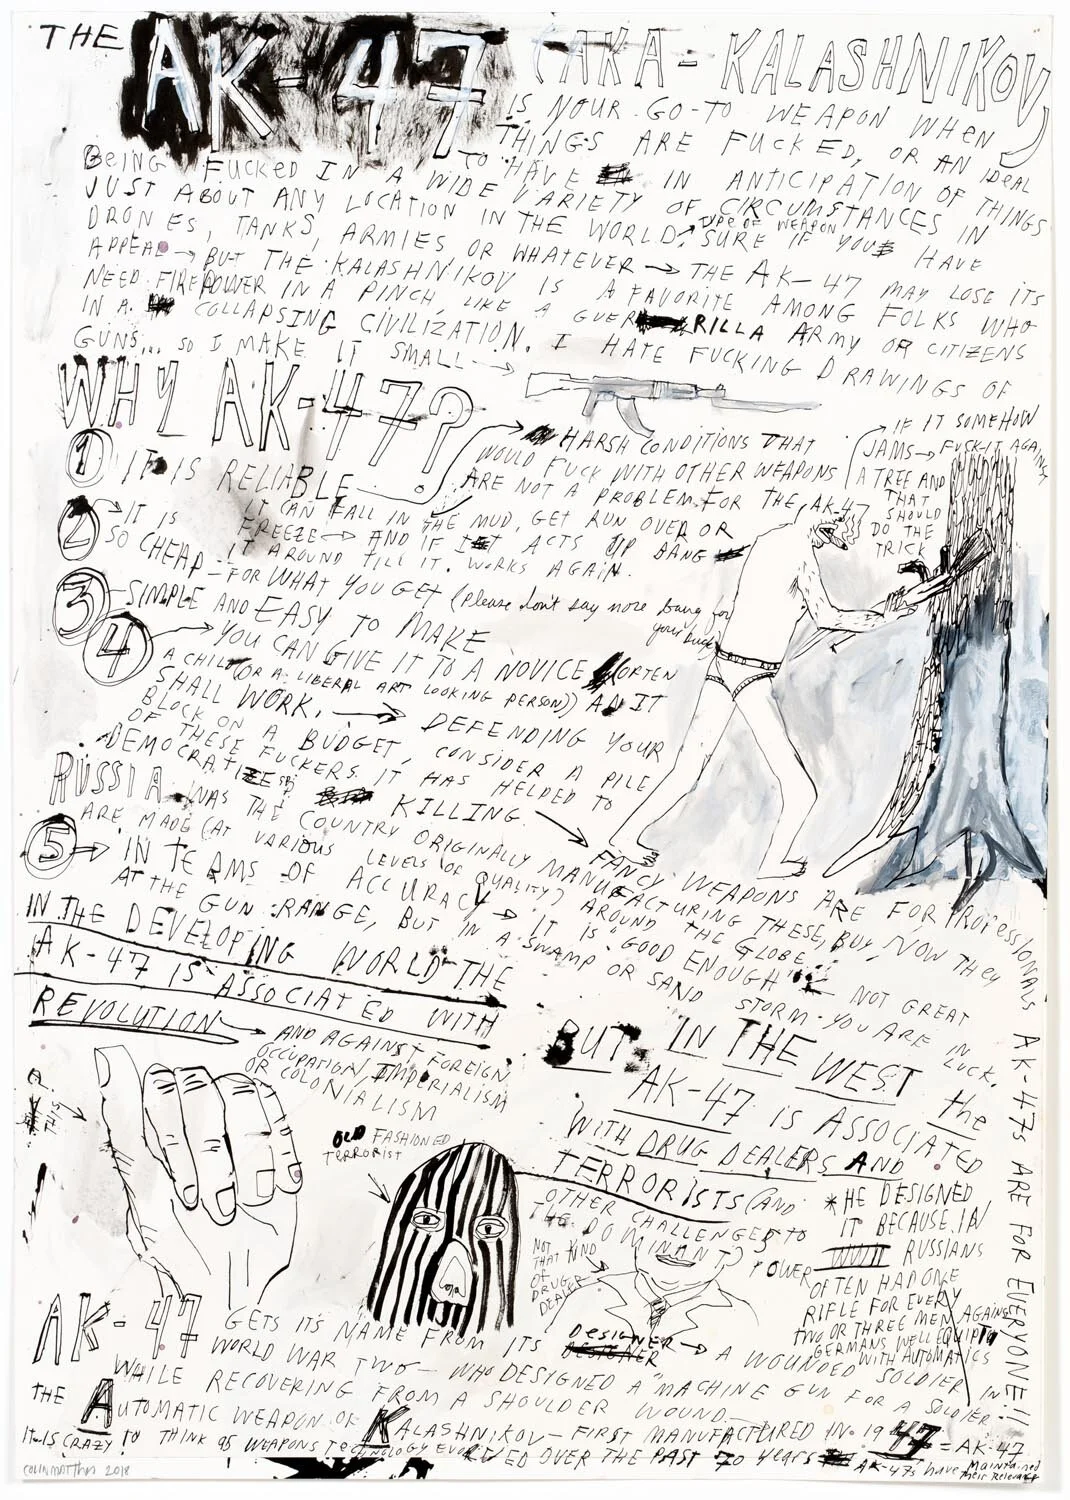 THE AK-47 (AKA - KALASHNIKOV)
IS YOUR GO-TO WEAPON WHEN
THINGS ARE FUCKED, OR AN IDEAL
TO HAVE IN ANTICIPATION OF THINGS
BEING FUCKED IN A WIDE VARIETY OF CIRCUMSTANCES IN
JUST ABOUT ANY LOCATION IN THE WORLD. SURE IF YOU HAVE
TYPE OF WEAPON
DRONES, TANKS, ARMIES, OR WHATEVER → THE AK-47 MAY LOSE ITS
APPEAL → BUT THE KALASHNIKOV IS A FAVORITE AMONG FOLKS WHO
NEED FIREPOWER IN A PINCH, LIKE A GUERRILLA ARMY OR CITIZENS
IN A COLLAPSING CIVILIZATION. I HATE FUCKING DRAWINGS OF
GUNS... SO I MAKE IT SMALL →
WHY AK-47?
① IT IS RELIABLE
HARSH CONDITIONS THAT
WOULD FUCK WITH OTHER WEAPONS
ARE NOT A PROBLEM FOR THE AK-47
IT CAN FALL IN THE MUD, GET RUN OVER OR
FREEZE → AND IF IT ACTS UP BANG
IT AROUND TILL IT WORKS AGAIN.
IF IT SOMEHOW
JAMS → FUCK IT AGAINST
A TREE AND
THAT
SHOULD
DO THE
TRICK
② → IT IS
SO CHEAP - FOR WHAT YOU GET (Please don't say more bang for
your buck)
③ SIMPLE AND EASY TO MAKE
④ → YOU CAN GIVE IT TO A NOVICE (OFTEN
A CHILD (OR A LIBERAL ART LOOKING PERSON)) AND IT
SHALL WORK. → DEFENDING YOUR
BLOCK ON A BUDGET, CONSIDER A PILE
OF THESE FUCKERS. IT HAS HELPED TO
DEMOCRATIZE KILLING →
FANCY WEAPONS ARE FOR PROFESSIONALS AK-47s ARE FOR EVERYONE!!
RUSSIA WAS THE COUNTRY ORIGINALLY MANUFACTURING THESE, BUT NOW THEY
ARE MADE (AT VARIOUS LEVELS OF QUALITY) AROUND THE GLOBE.
⑤ → IN TERMS OF ACCURACY → IT IS "GOOD ENOUGH" - NOT GREAT
AT THE GUN RANGE, BUT IN A SWAMP OR SAND STORM - YOU ARE IN LUCK.
IN THE DEVELOPING WORLD THE
AK-47 IS ASSOCIATED WITH
REVOLUTION →
AND AGAINST FOREIGN
OCCUPATION/IMPERIALISM
OR COLONIALISM
BUT IN THE WEST the
AK-47 IS ASSOCIATED
WITH DRUG DEALERS AND
TERRORISTS (AND
OTHER CHALLENGES TO
THE DOMINANT)
POWER
THIS
OLD FASHIONED
TERRORIST
NOT
THAT KIND
OF
DRUG
DEALER
*HE DESIGNED
IT BECAUSE IN
RUSSIANS
OFTEN HAD ONE
RIFLE FOR EVERY
TWO OR THREE MEN AGAINST
GERMANS WELL EQUIPT
WITH AUTOMATICS
AK-47 GETS IT'S NAME FROM ITS DESIGNER → A WOUNDED SOLDIER IN
WORLD WAR TWO - WHO DESIGNED A "MACHINE GUN FOR A SOLDIER"
WHILE RECOVERING FROM A SHOULDER WOUND -
THE AUTOMATIC WEAPON OF KALASHNIKOV - FIRST MANUFACTURED IN 1947 = AK-47
IT IS CRAZY TO THINK OF WEAPONS TECHNOLOGY EVOLVED OVER THE PAST 70 years AK-47s have MAINTAINED
their Relevance
COLIN MATTHES 2018